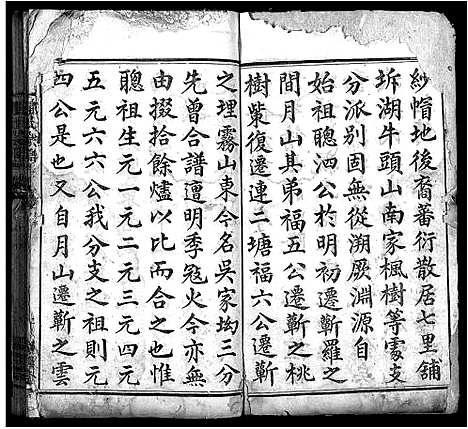 紗帽地後裔蕃衍散居七里舖
坼湖牛頭山南家楓樹等處支
分派別固無從溯厥淵源自
始祖聰泗公於明初遷蘄羅之
間月山其弟福五公遷蘄之桃
樹䓵復遷連二塘福六公遷蘄
之埋霧山東今名吳家坳三分
先曾合譜遭明季冦火今亦無
由掇拾餘燼以比而合之也惟
聰祖生元一元二元三元四元
五元六六公我分支之祖則元
四公是也又自月山遷蘄之雲